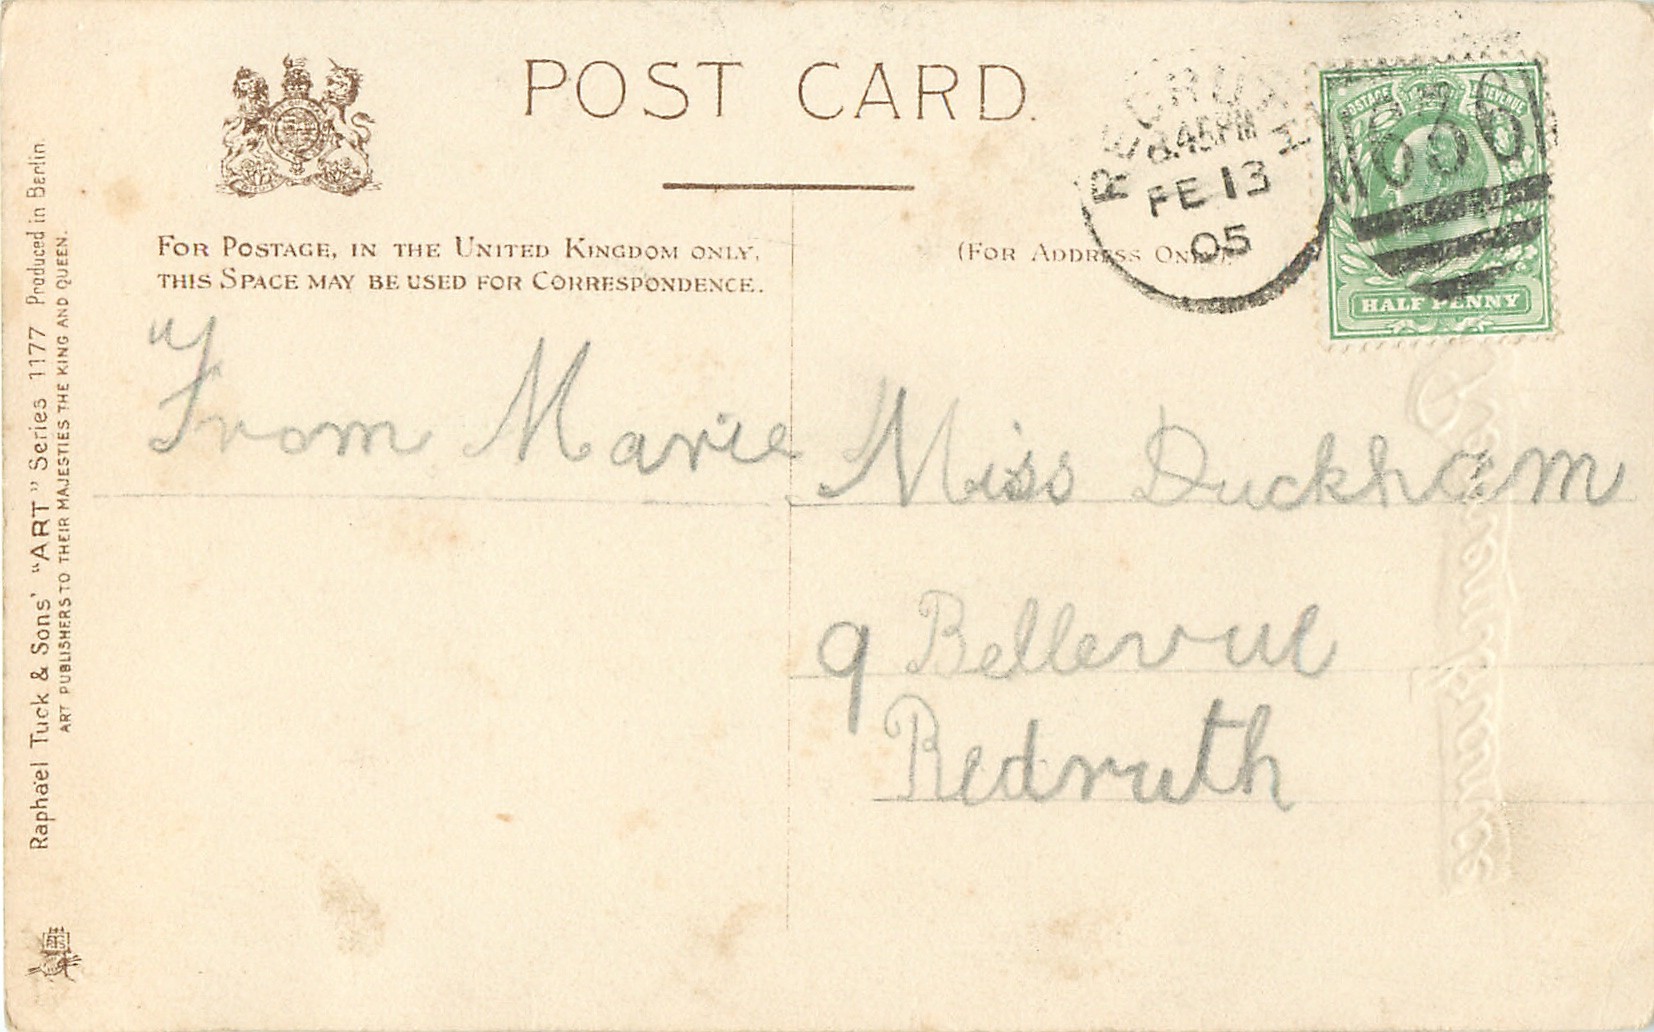 POST CARD.
FOR POSTAGE, IN THE UNITED KINGDOM ONLY,
THIS SPACE MAY BE USED FOR CORRESPONDENCE.
(FOR ADDRESS ONLY).
REDRUTH
8.45PM
FE 13
05
POSTAGE REVENUE
HALF PENNY
"From Marie
Miss Duckham
9 Bellevue
Redruth
Raphael Tuck & Sons' "ART" Series 1177 Produced in Berlin.
ART PUBLISHERS TO THEIR MAJESTIES THE KING AND QUEEN.